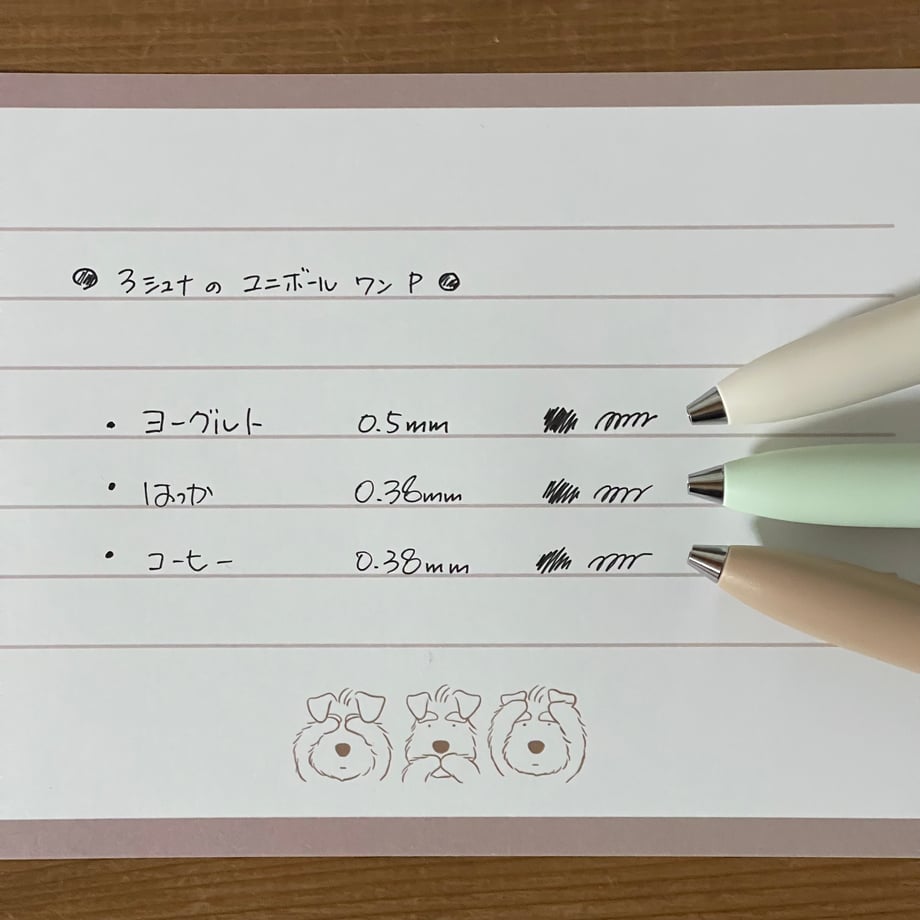 3シュナの ユニボール ワン P
・ ヨーグルト 0.5mm
・ はっか 0.38mm
・ コーヒー 0.38mm